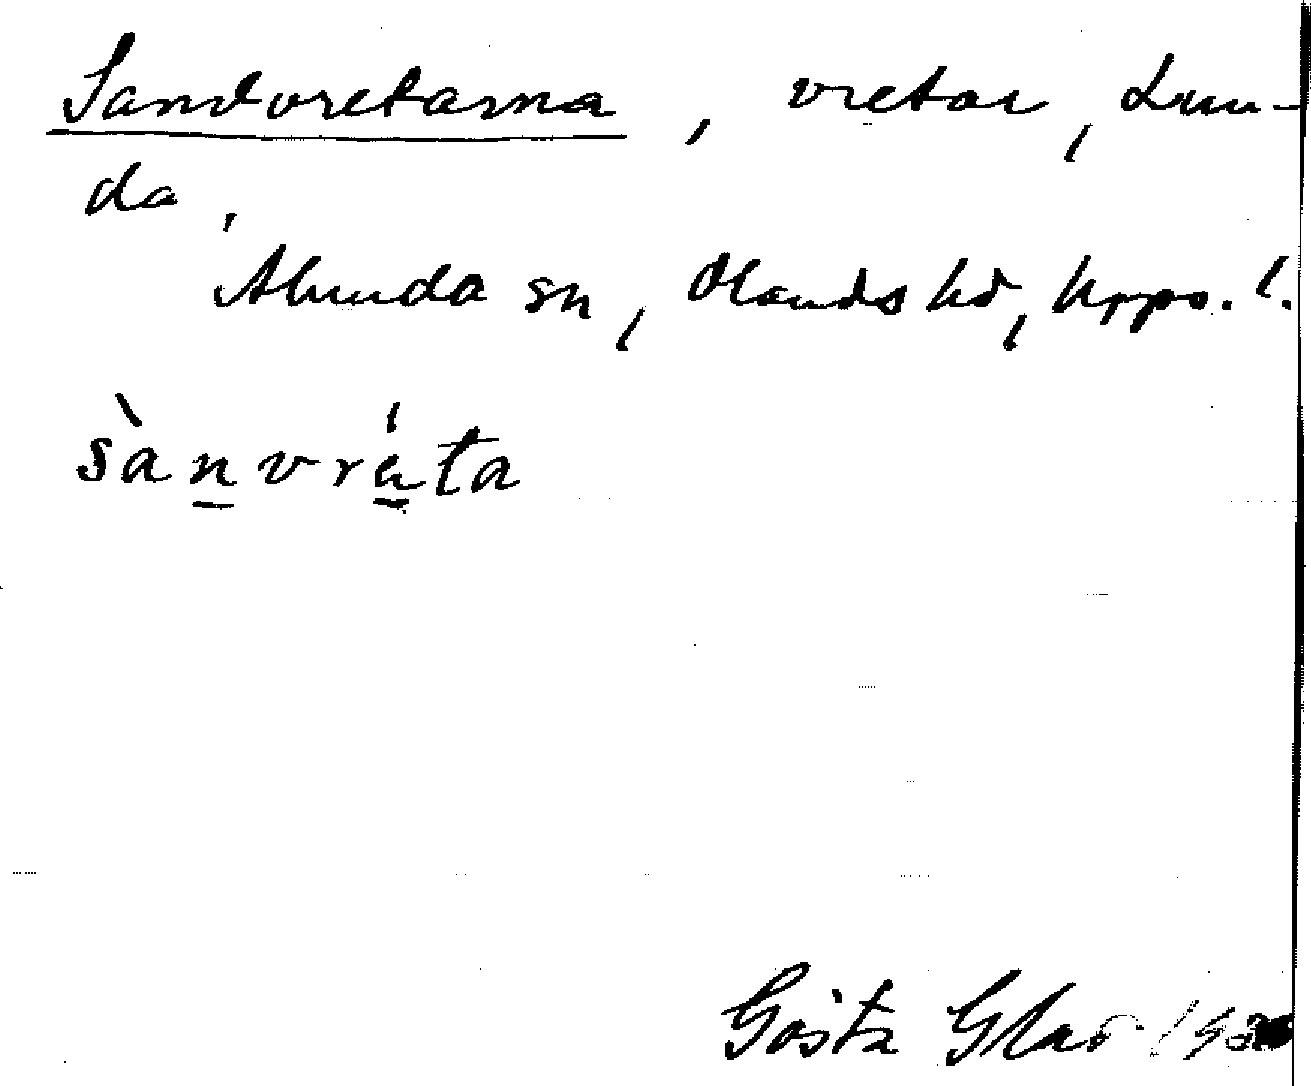 Sandvretarna, vretar, Lun-
da,
Alunda sn, Olands hd, Upps. l.
sànvréta
Gösta Glas